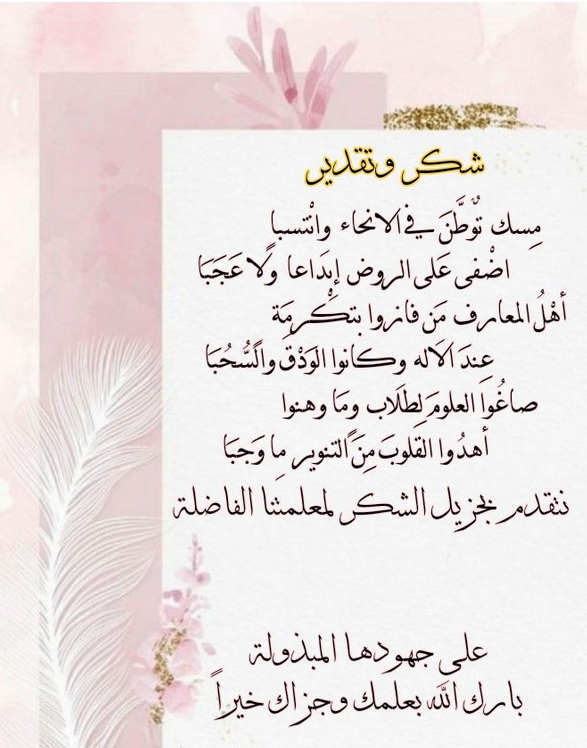 شكر وتقدير
مِسك تَوَطَّنَ في الانحاء وانْتسبا
اضْفى عَلى الروض إبدَاعا ولَا عَجَبَا
أهْلُ المعارف مَن فازوا بتكْرمَة
عِندَ الاله وكانوا الوَدْقَ والسُّحُبَا
صاغُوا العلومَ لِطلَاب ومَا وهنوا
أهدُوا القلوبَ مِنَ التنوير مِا وَجبَا
نتقدم بجزيل الشكر لمعلمتنا الفاضلة
على جهودها المبذولة
بارك الله بعلمك وجزاك خيراً